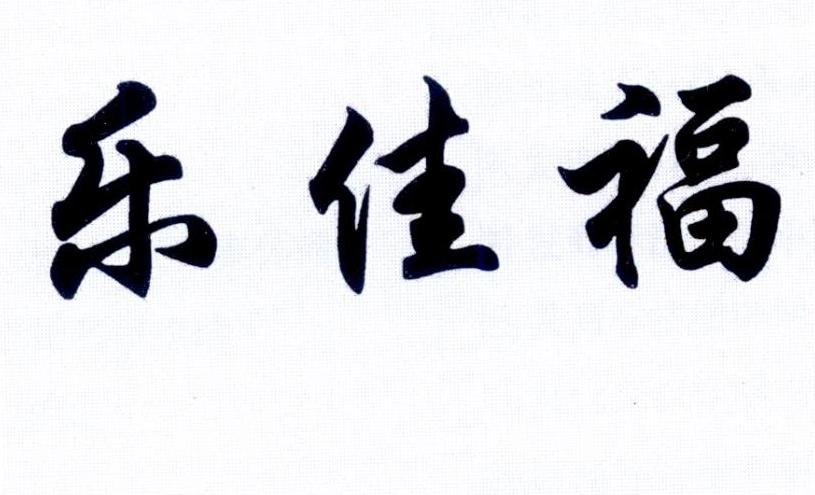 乐佳福